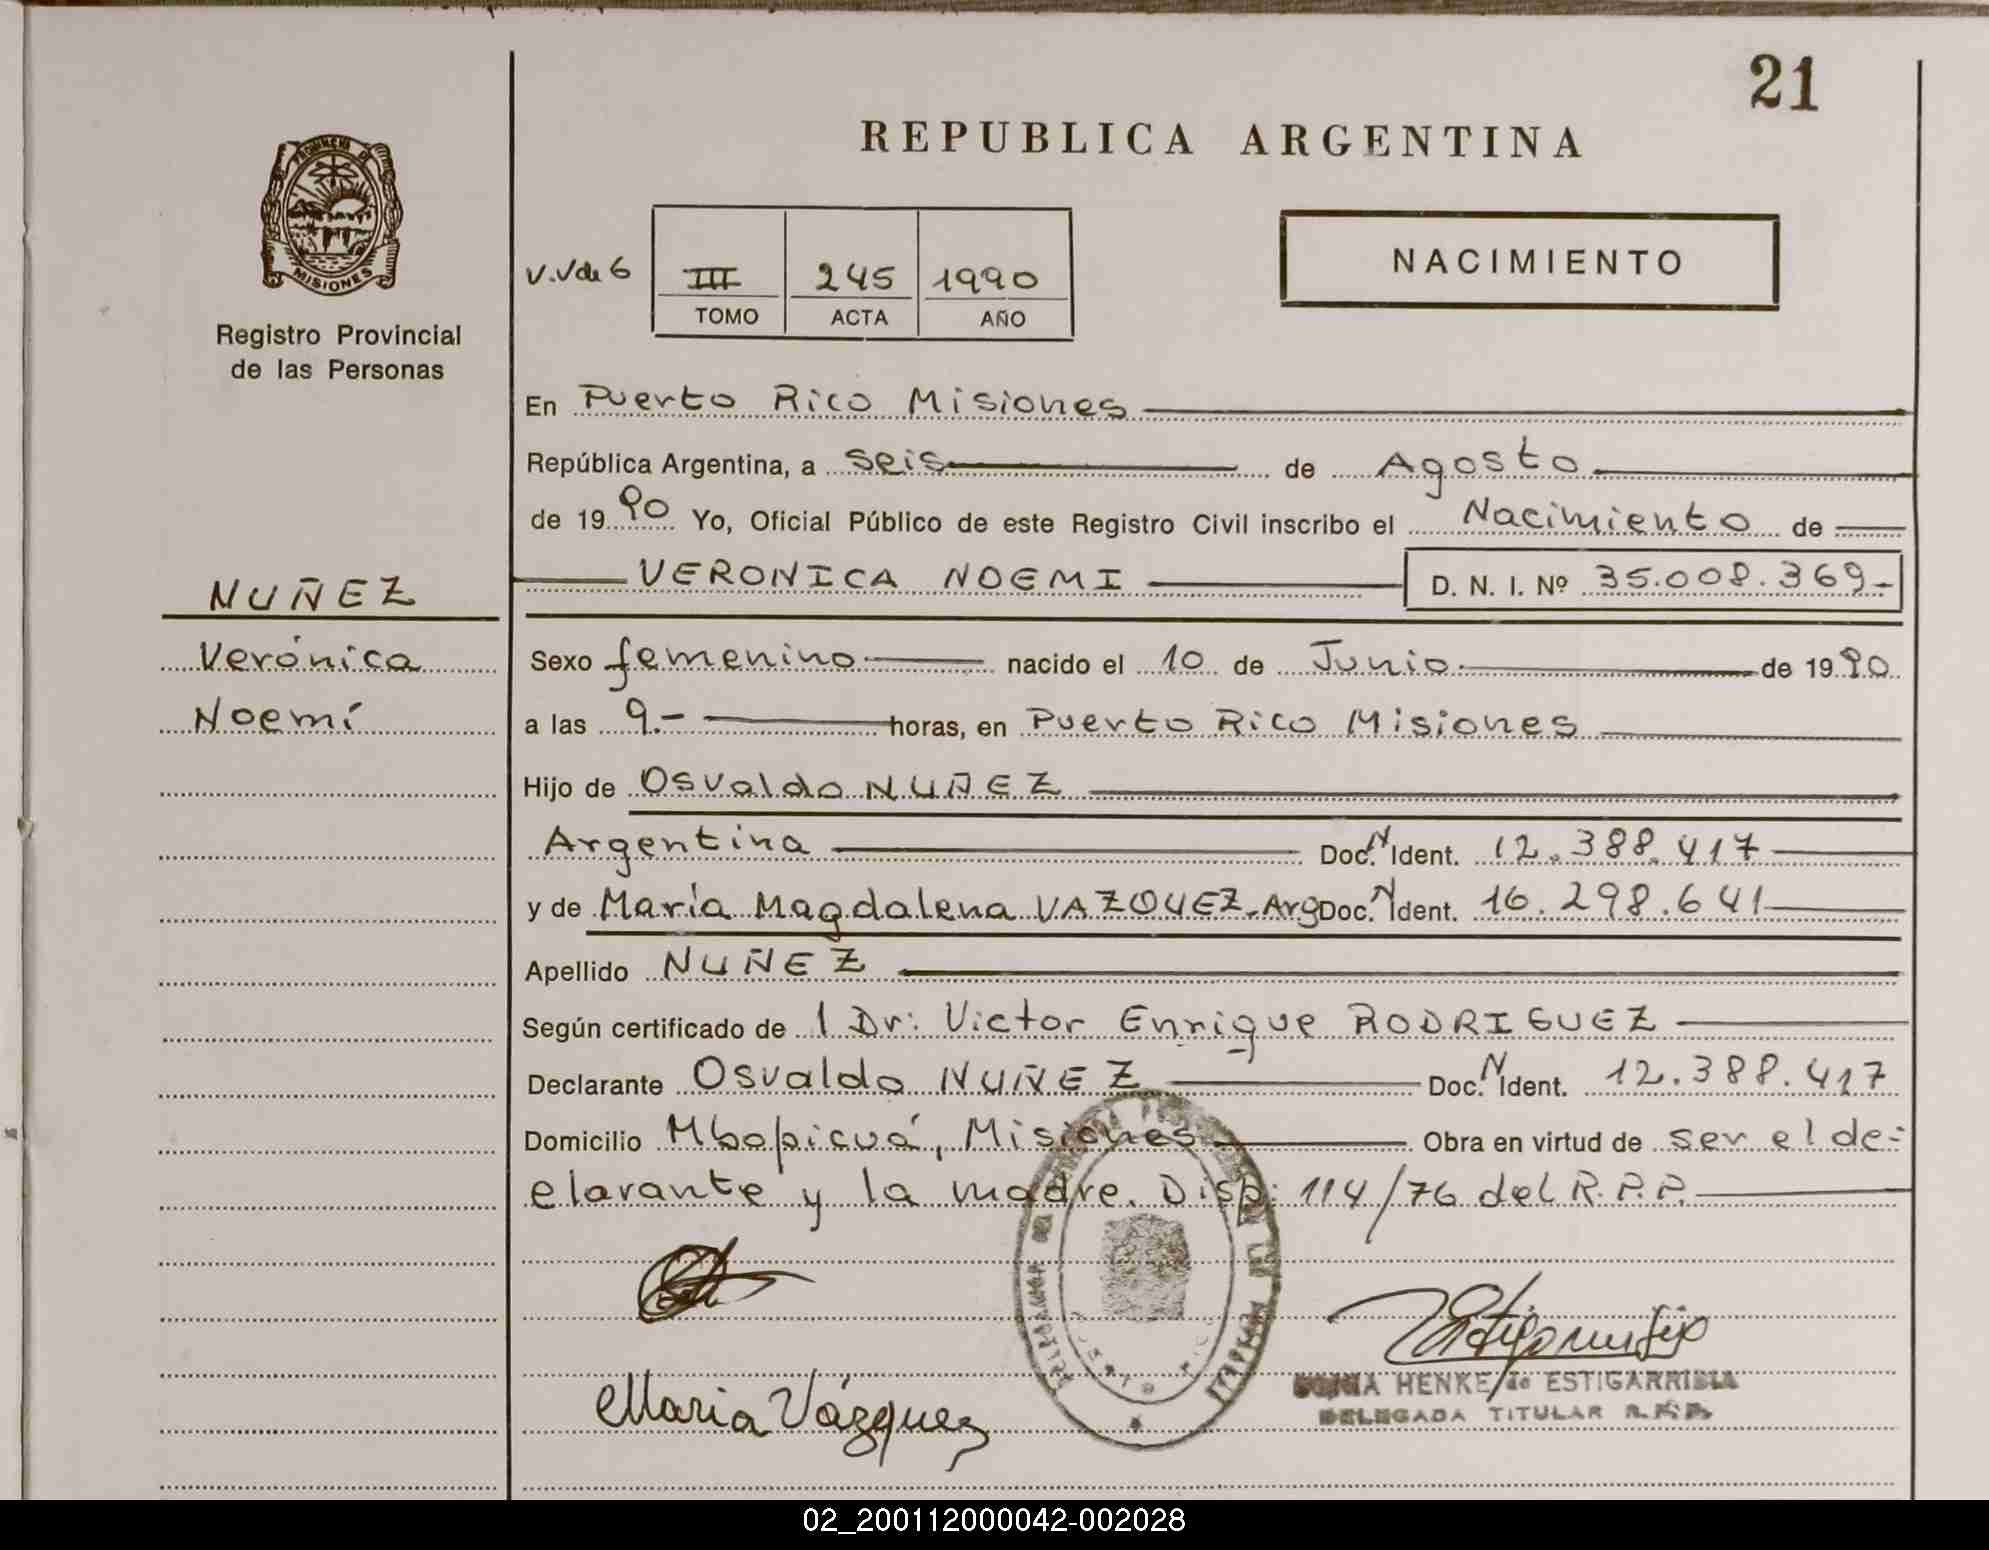 21
REPUBLICA ARGENTINA
PROVINCIA DE
MISIONES
Registro Provincial
de las Personas
V. V de 6
III 245 1990
TOMO ACTA AÑO
NACIMIENTO
En Puerto Rico Misiones
República Argentina, a seis de Agosto
de 1990 Yo, Oficial Público de este Registro Civil inscribo el Nacimiento de
VERONICA NOEMI D. N. I. Nº 35.008.369.-
NUÑEZ
Verónica
Noemí
Sexo femenino nacido el 10 de Junio de 1990
a las 9.- horas, en Puerto Rico Misiones
Hijo de Osvaldo NUÑEZ
Argentina Doc. N Ident. 12.388.417
y de María Magdalena VAZQUEZ. Arg Doc. N Ident. 16.298.641
Apellido NUÑEZ
Según certificado de 1 Dr: Victor Enrique RODRIGUEZ
Declarante Osvaldo NUÑEZ Doc. N Ident. 12.388.417
Domicilio Mbopicuá, Misiones Obra en virtud de ser el de-
clarante y la madre. Disp: 114/76 del R.P.P.
Maria Vázquez
SONIA HENKE de ESTIGARRIBIA
DELEGADA TITULAR R.P.P.
02_200112000042-002028